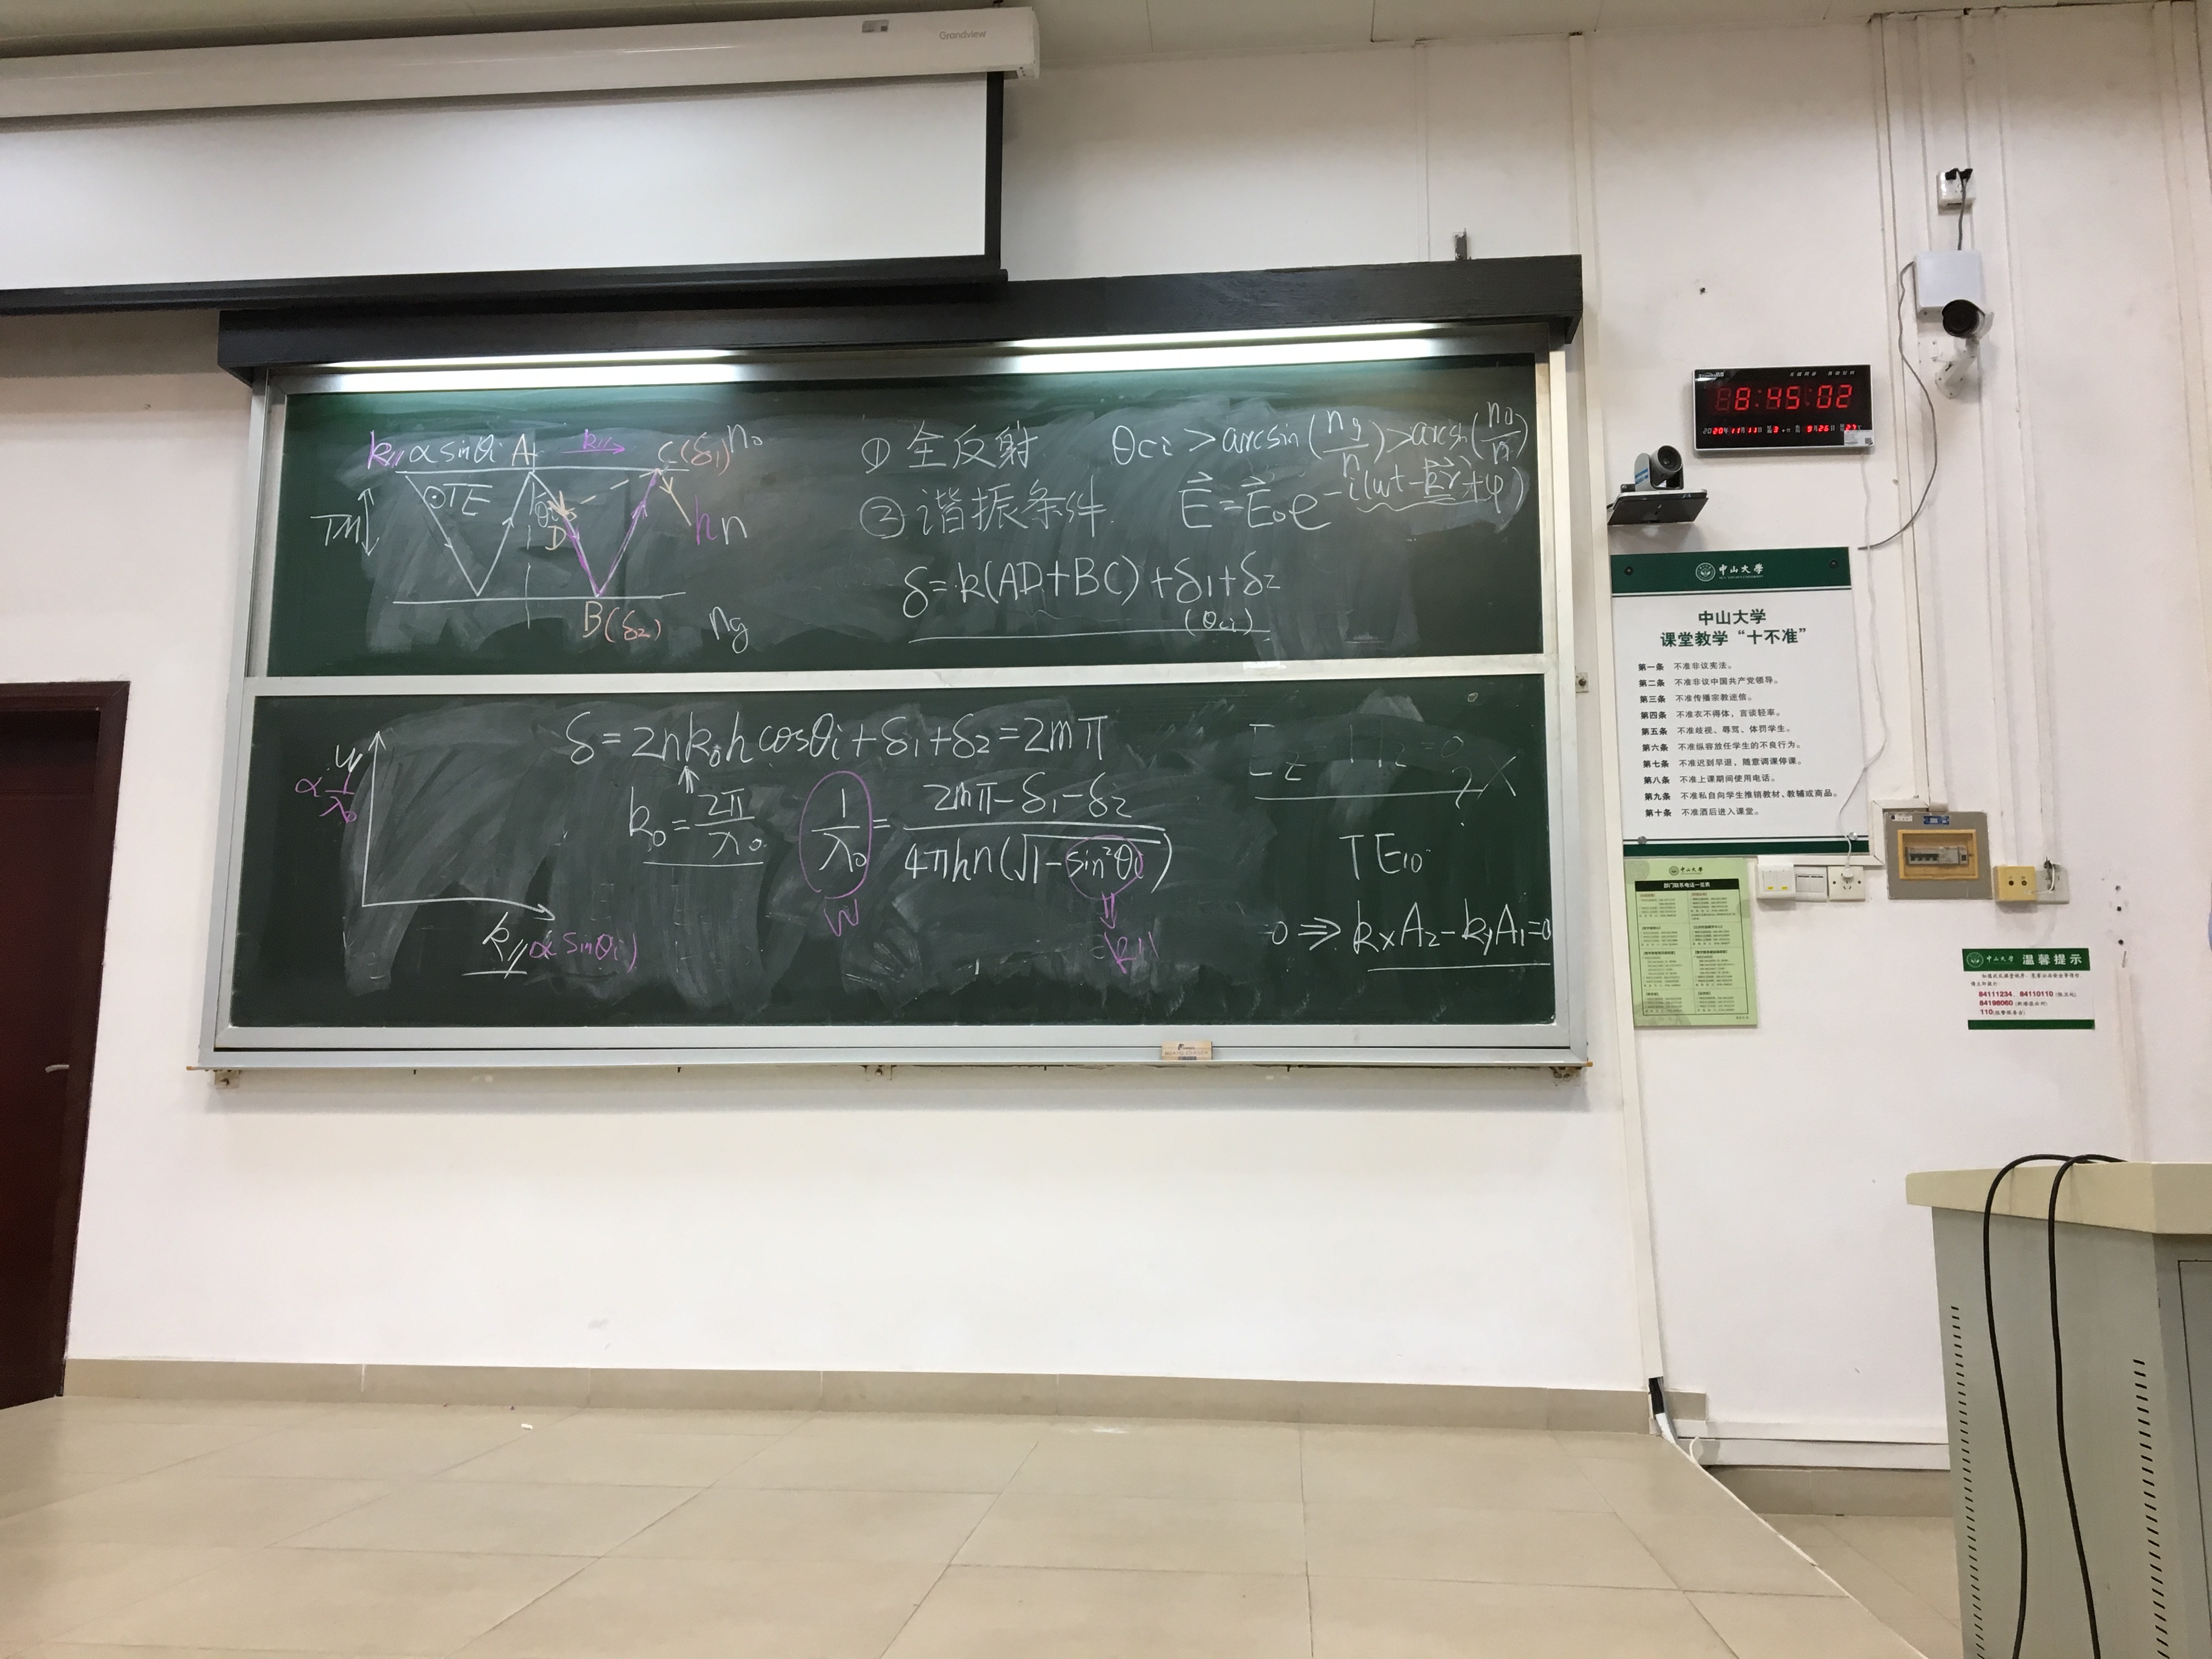 Grandview
k∥ ∝ sinθi A k∥→ C(δ1) n0
⊙TE
TM
θi
D
h n
B(δ2) ng
① 全反射 θci > arcsin(ng/n) > arcsin(n0/n)
② 谐振条件 E⃗ = E⃗0 e^-i(ωt - k⃗r⃗ + φ)
δ = k(AD+BC) + δ1 + δ2
(θci)
δ = 2nk0h cosθi + δ1 + δ2 = 2mπ
w
∝ 1/λ0
k∥ ∝ sinθi)
k0 = 2π/λ0
1/λ0 = (2mπ - δ1 - δ2)/(4πhn(√1 - sin²θi))
W
∝k∥
Ez = Hz = 0
? ×
TE10
0 ⇒ kxA2 - kyA1 = 0
8:45:02
中山大學
中山大学
课堂教学“十不准”
第一条 不准非议宪法。
第二条 不准非议中国共产党领导。
第三条 不准传播宗教迷信。
第四条 不准衣不得体，言谈轻率。
第五条 不准歧视、辱骂、体罚学生。
第六条 不准纵容放任学生的不良行为。
第七条 不准迟到早退，随意调课停课。
第八条 不准上课期间使用电话。
第九条 不准私自向学生推销教材、教辅或商品。
第十条 不准酒后进入课堂。
中山大學
部门联系电话一览表
中山大學 温馨提示
84111234、84110110
84198060
110